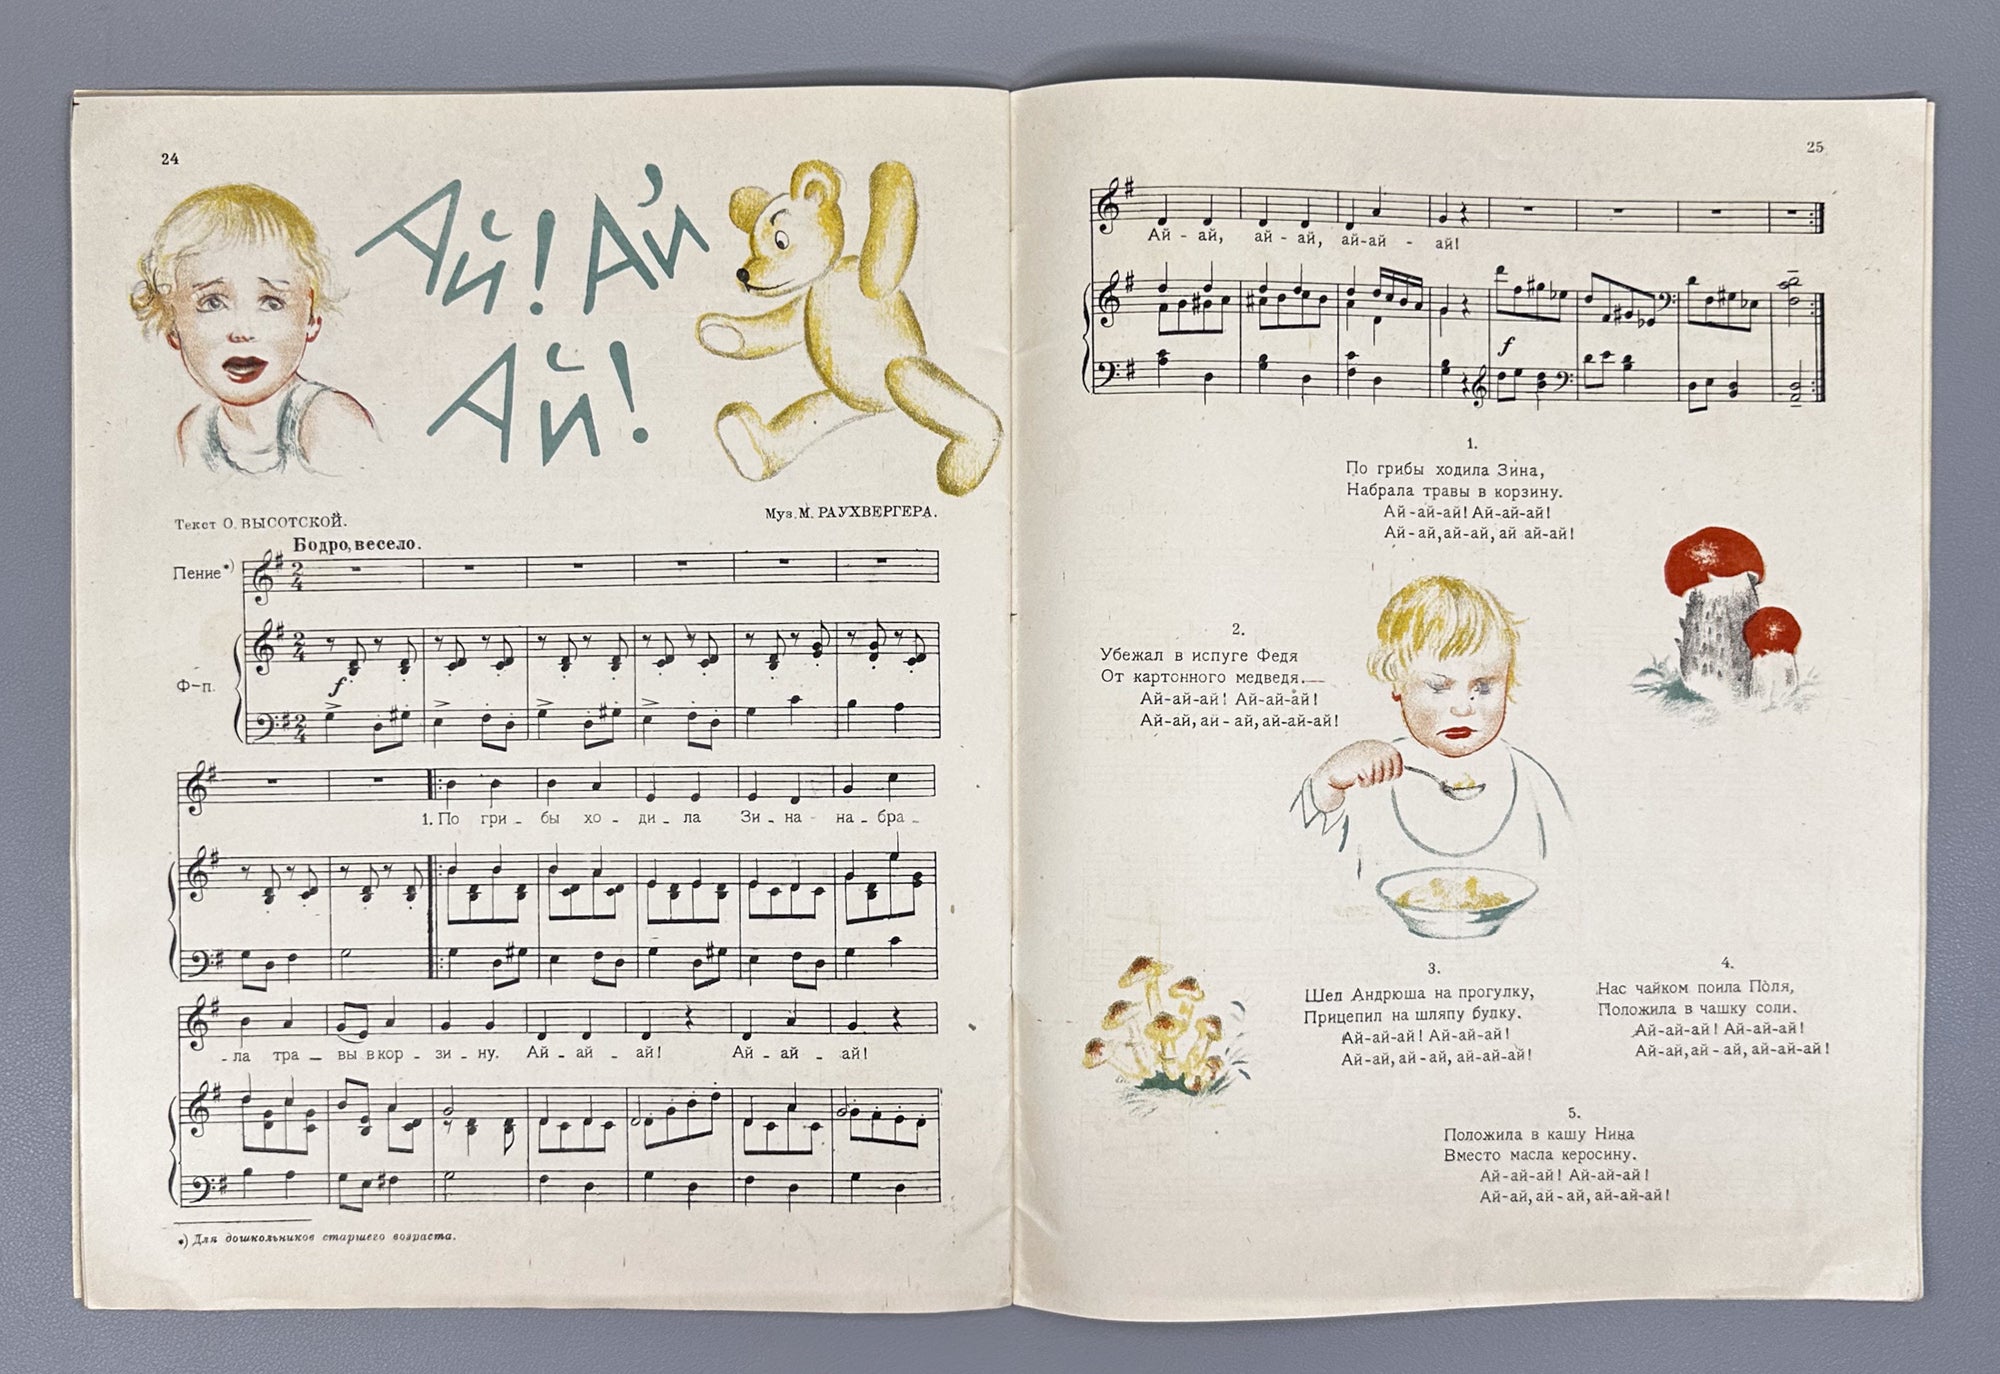 24
Ай! Ай
Ай!
Текст О. ВЫСОТСКОЙ.
Муз. М. РАУХВЕРГЕРА.
Бодро, весело.
Пение*)
Ф-п.
f
1. По гри - бы хо - ди - ла Зи - на - на - бра -
- ла тра - вы в кор - зи - ну. Ай - ай - ай! Ай - ай - ай!
*) Для дошкольников старшего возраста.
25
Ай - ай, ай - ай, ай-ай - ай!
f
1.
По грибы ходила Зина,
Набрала травы в корзину.
Ай-ай-ай! Ай-ай-ай!
Ай-ай, ай-ай, ай ай-ай!
2.
Убежал в испуге Федя
От картонного медведя.—
Ай-ай-ай! Ай-ай-ай!
Ай-ай, ай-ай, ай-ай-ай!
3.
Шел Андрюша на прогулку,
Прицепил на шляпу булку.
Ай-ай-ай! Ай-ай-ай!
Ай-ай, ай-ай, ай-ай-ай!
4.
Нас чайком поила Поля,
Положила в чашку соли.
Ай-ай-ай! Ай-ай-ай!
Ай-ай, ай-ай, ай-ай-ай!
5.
Положила в кашу Нина
Вместо масла керосину.
Ай-ай-ай! Ай-ай-ай!
Ай-ай, ай-ай, ай-ай-ай!